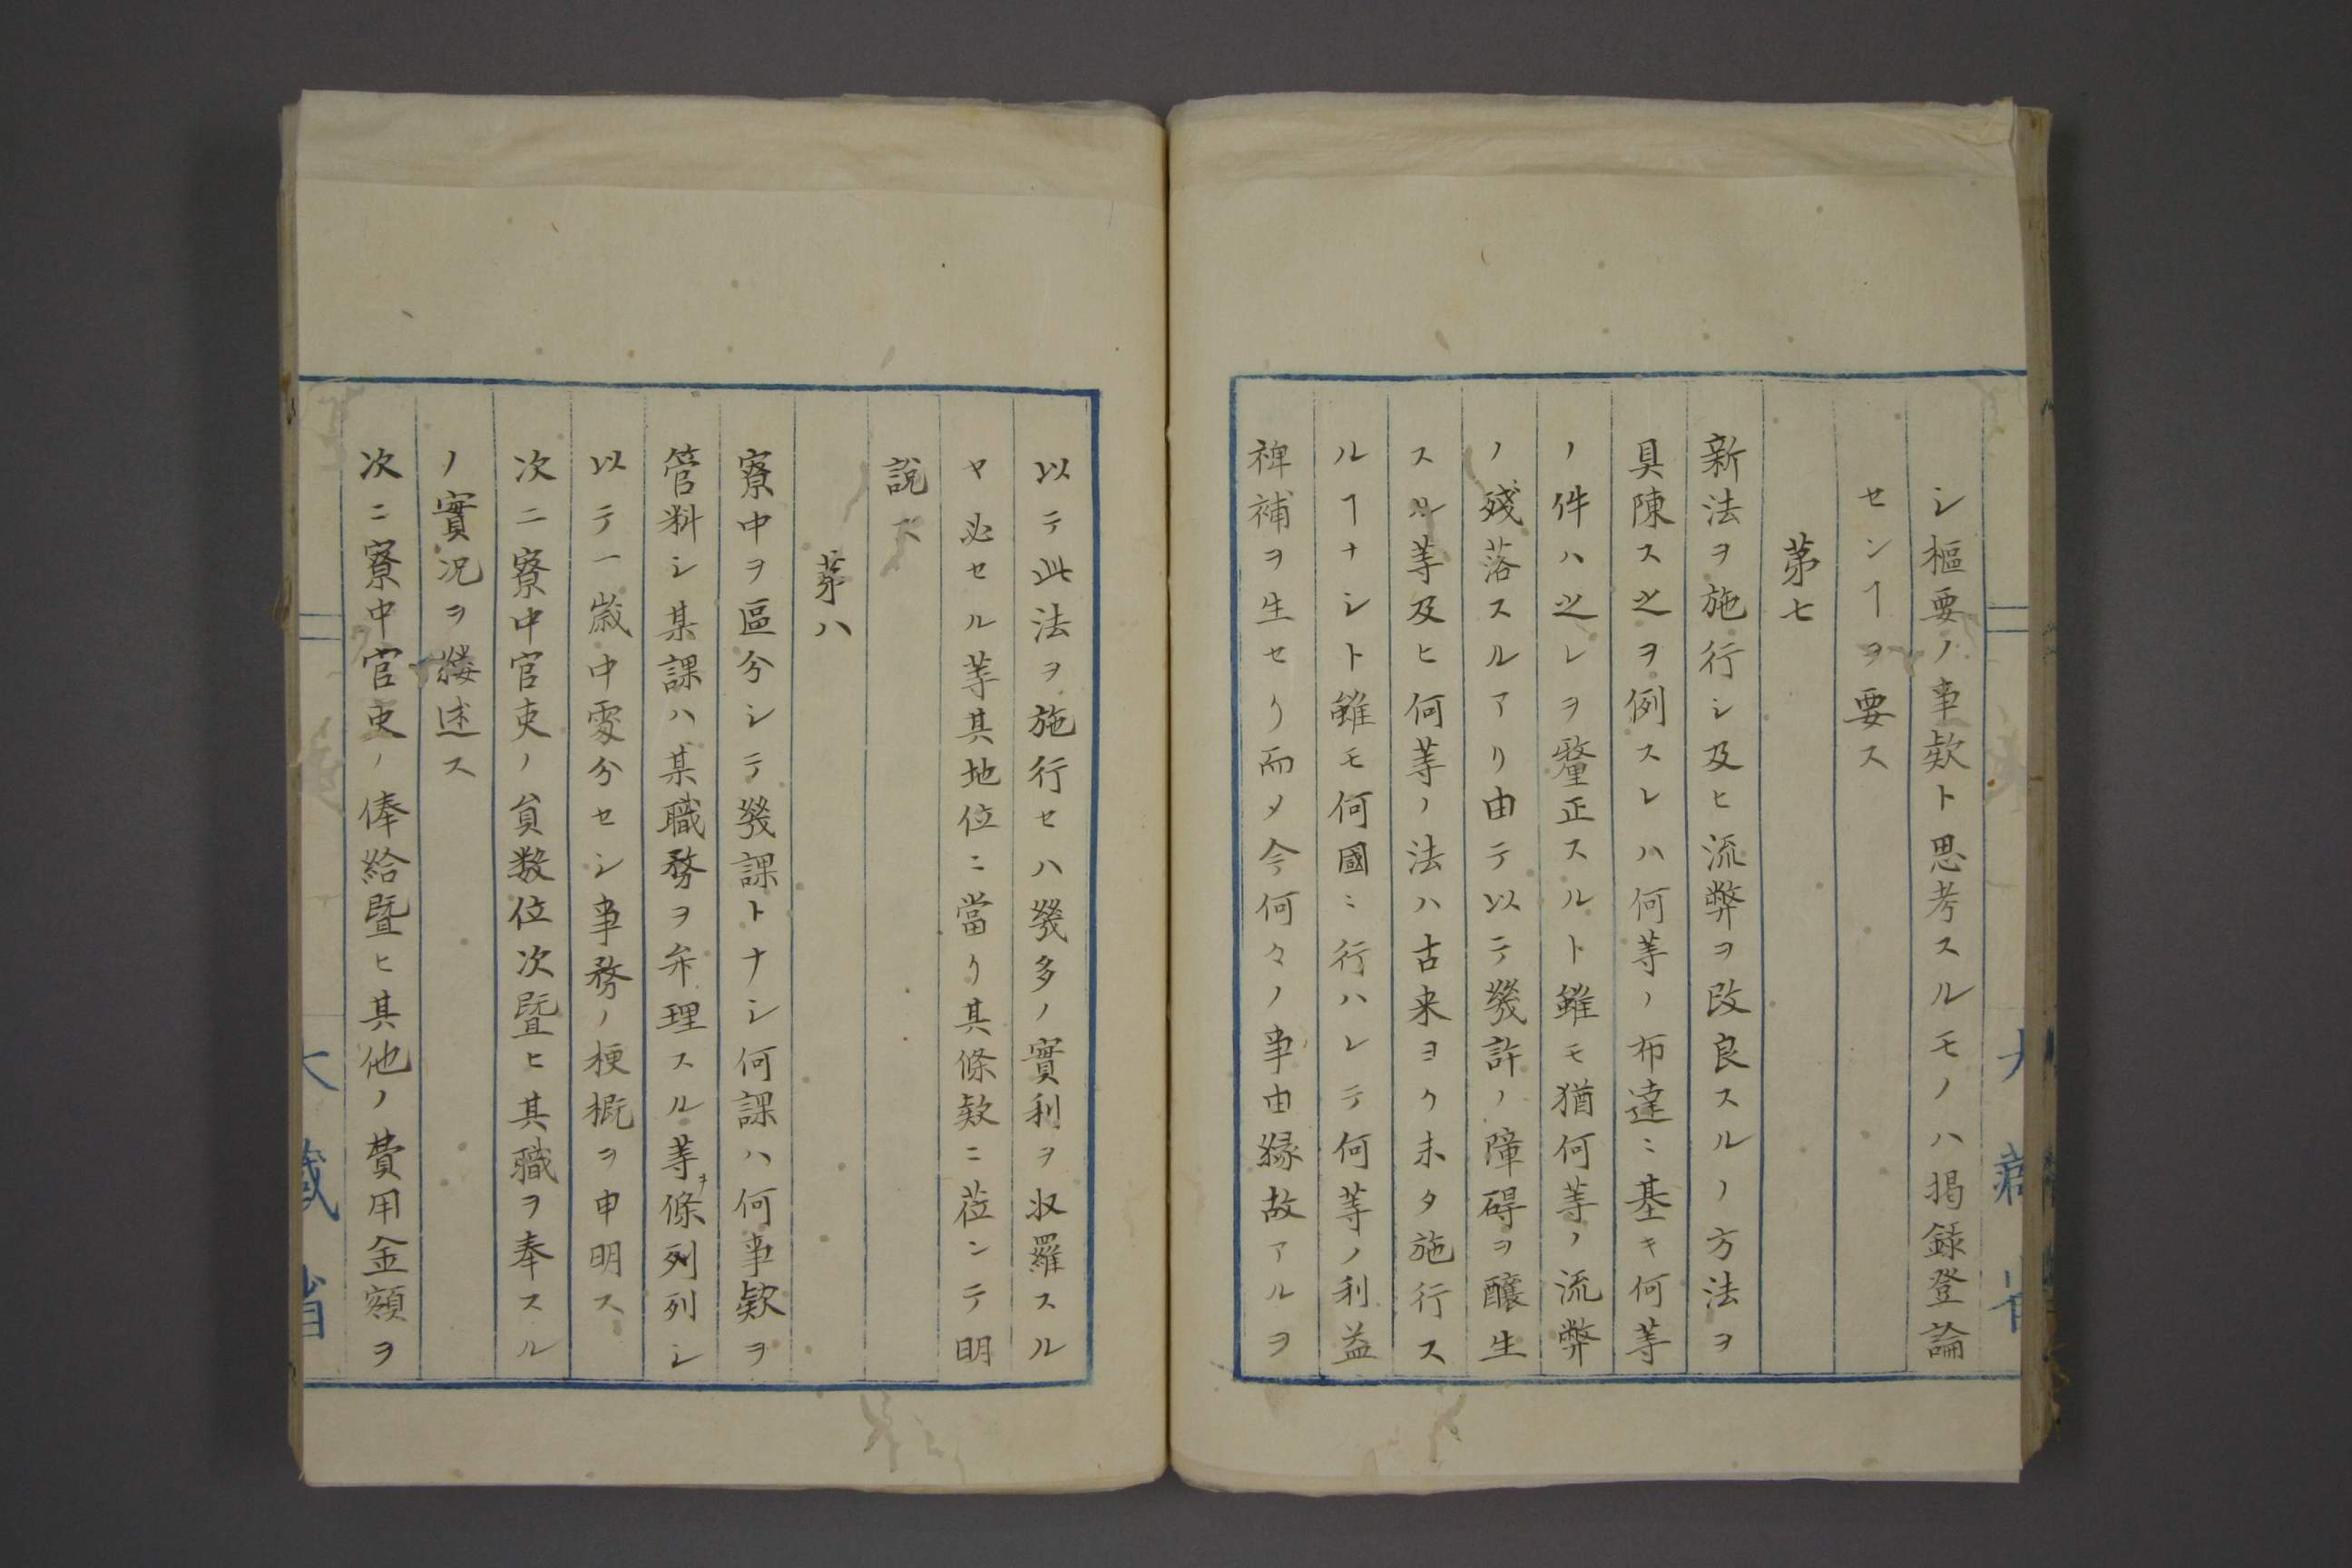 シ樞要ノ事欵ト思考スルモノハ掲録登論
センヿヲ要ス
苐七
新法ヲ施行シ及ヒ流弊ヲ改良スルノ方法ヲ
具陳ス之ヲ例スレハ何等ノ布達ニ基キ何等
ノ件ハ之レヲ釐正スルト雖モ猶何等ノ流弊
ノ殘落スルアリ由テ以テ幾許ノ障碍ヲ釀生
スル等及ヒ何等ノ法ハ古来ヨク未タ施行ス
ルヿナシト雖モ何國ニ行ハレテ何等ノ利益
裨補ヲ生セリ而メ今何々ノ事由縁故アルヲ
以テ此法ヲ施行セハ幾多ノ實利ヲ収羅スル
ヤ必セル等其地位ニ當リ其條欵ニ莅ンテ明
說ス
苐八
寮中ヲ區分シテ幾課トナシ何課ハ何事欵ヲ
管料シ某課ハ某職務ヲ弁理スル等ヲ條列列シ
以テ一歳中䖏分セシ事務ノ梗概ヲ申明ス
次ニ寮中官吏ノ負数位次曁ヒ其職ヲ奉スル
ノ實况ヲ縷述ス
次ニ寮中官吏ノ俸給曁ヒ其他ノ費用金額ヲ
大藏省
大藏省